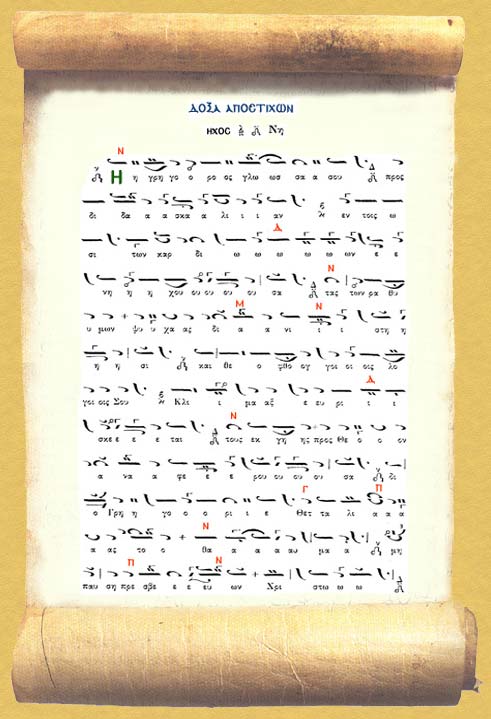 ΔΟΞΑ ΑΠΟΣΤΙΧΩΝ
ΗΧΟΣ Νη
Ν
Η η γρη γο ο ρος γλω ωσ σα α σου προς
δι δα α α σκα α λι ι ι αν εν τοις ω
Δ
σι των καρ δι ω ω ω ω ω ων ε ε
Ν
νη η η χου ου ου ου ου σα τας των ρα θυ
Μ Ν
υ μων ψυ υ χα ας δι α α νι ι ι στη η
η η σι και θε ο φθο ογ γοι οι οις λο
Δ
γοι οις Σου Κλι ι μα αξ ε ευ ρι ι ι
Ν
σκε ε ε ται τους εκ γη ης προς Θε ο ο ον
α να α φε ε ε ρου ου ου ου σα δι
Γ Π
ο Γρη η γο ο ο ρι ι ε Θετ τα λι α α α
Ν
α ας το ο θα α α α αυ μα α μη
Π Ν
παυ ση πρε σβε ε ε ευ ων Χρι στω ω ω